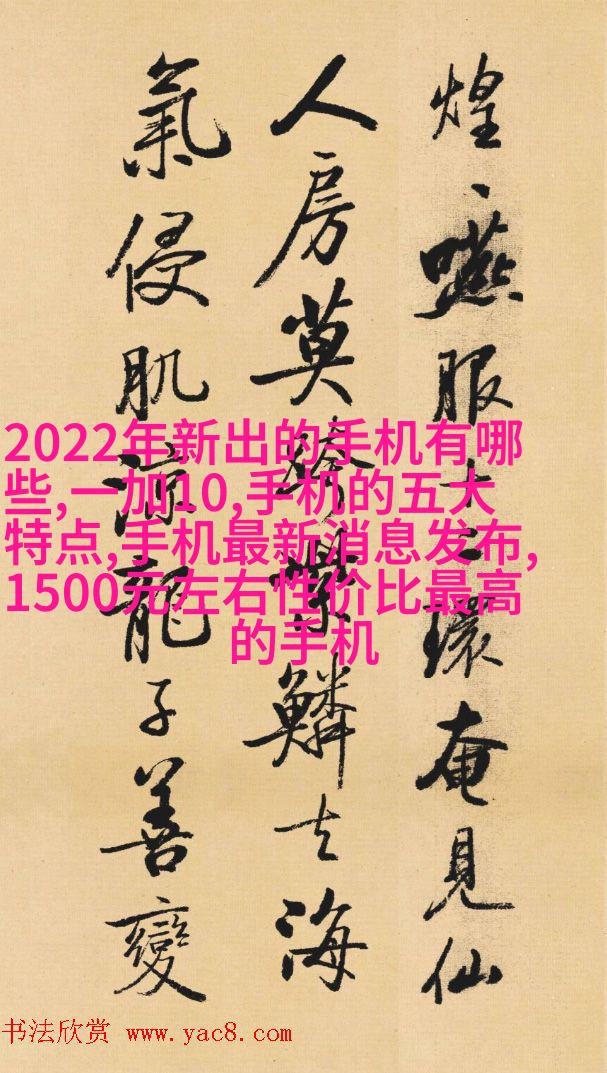 煌、嚥服十二環奄見仙
人房莫騎紫鱗去海
氣侵肌涼龍子善變
2022年新出的手机有哪
些,一加10,手机的五大
特点,手机最新消息发布,
1500元左右性价比最高
的手机
书法欣赏 www.yac8.com